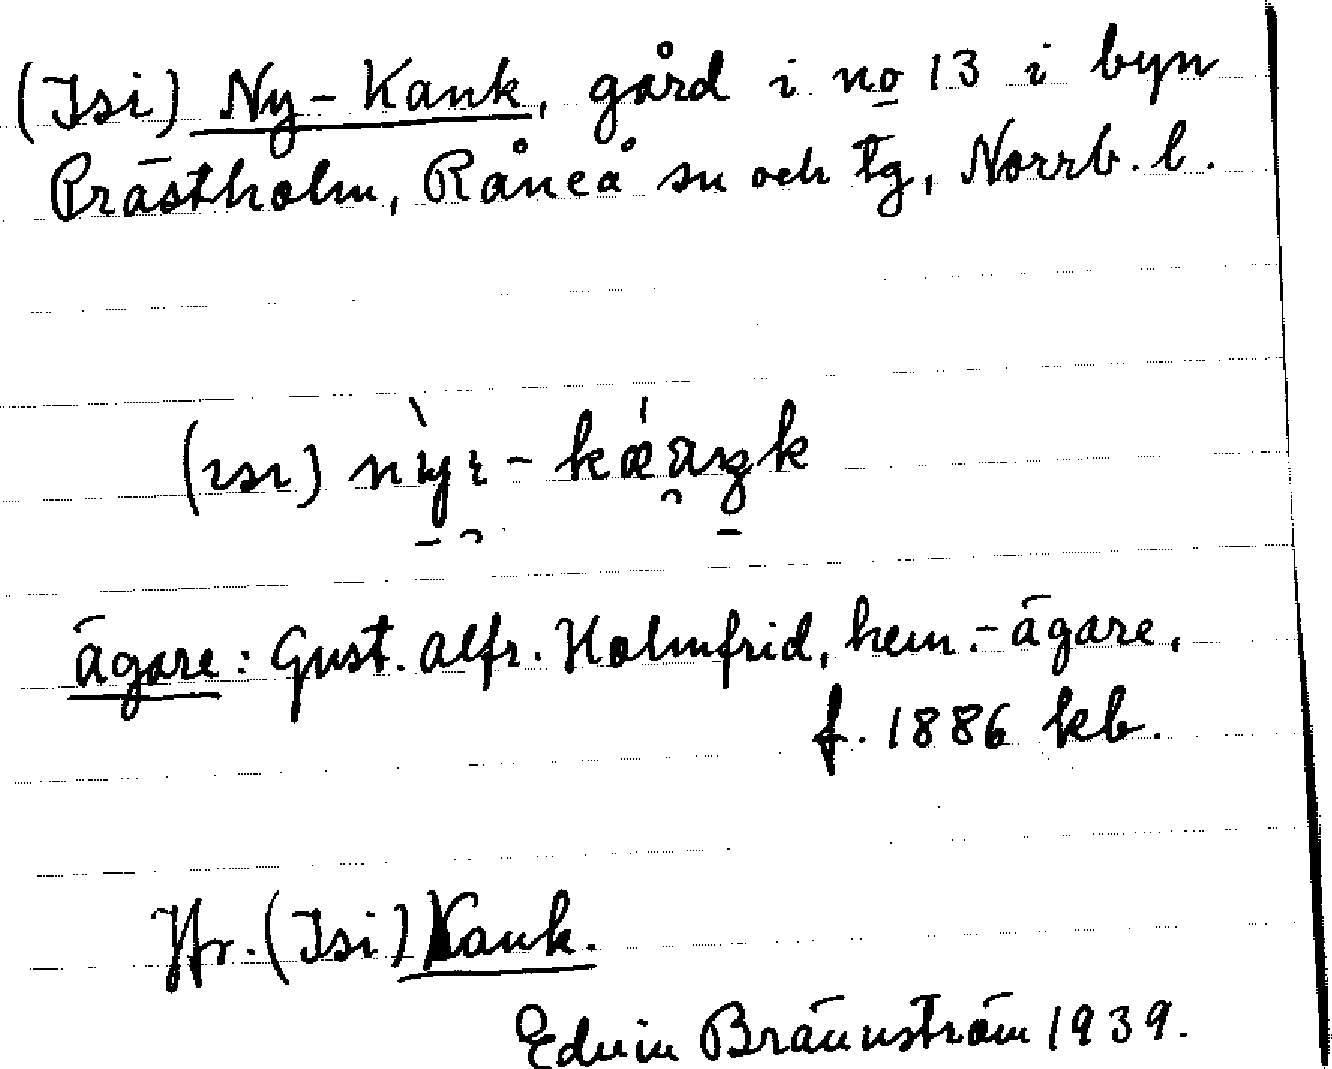 (Isi) Ny-Kank, gård i no 13 i byn
Prästholm, Råneå sn och tg, Norrb. l.
ägare: Gust. Alfr. Holmfrid, hem.-ägare,
f. 1886 kb.
Jfr. (Isi) Kank.
Edvin Brännström 1939.